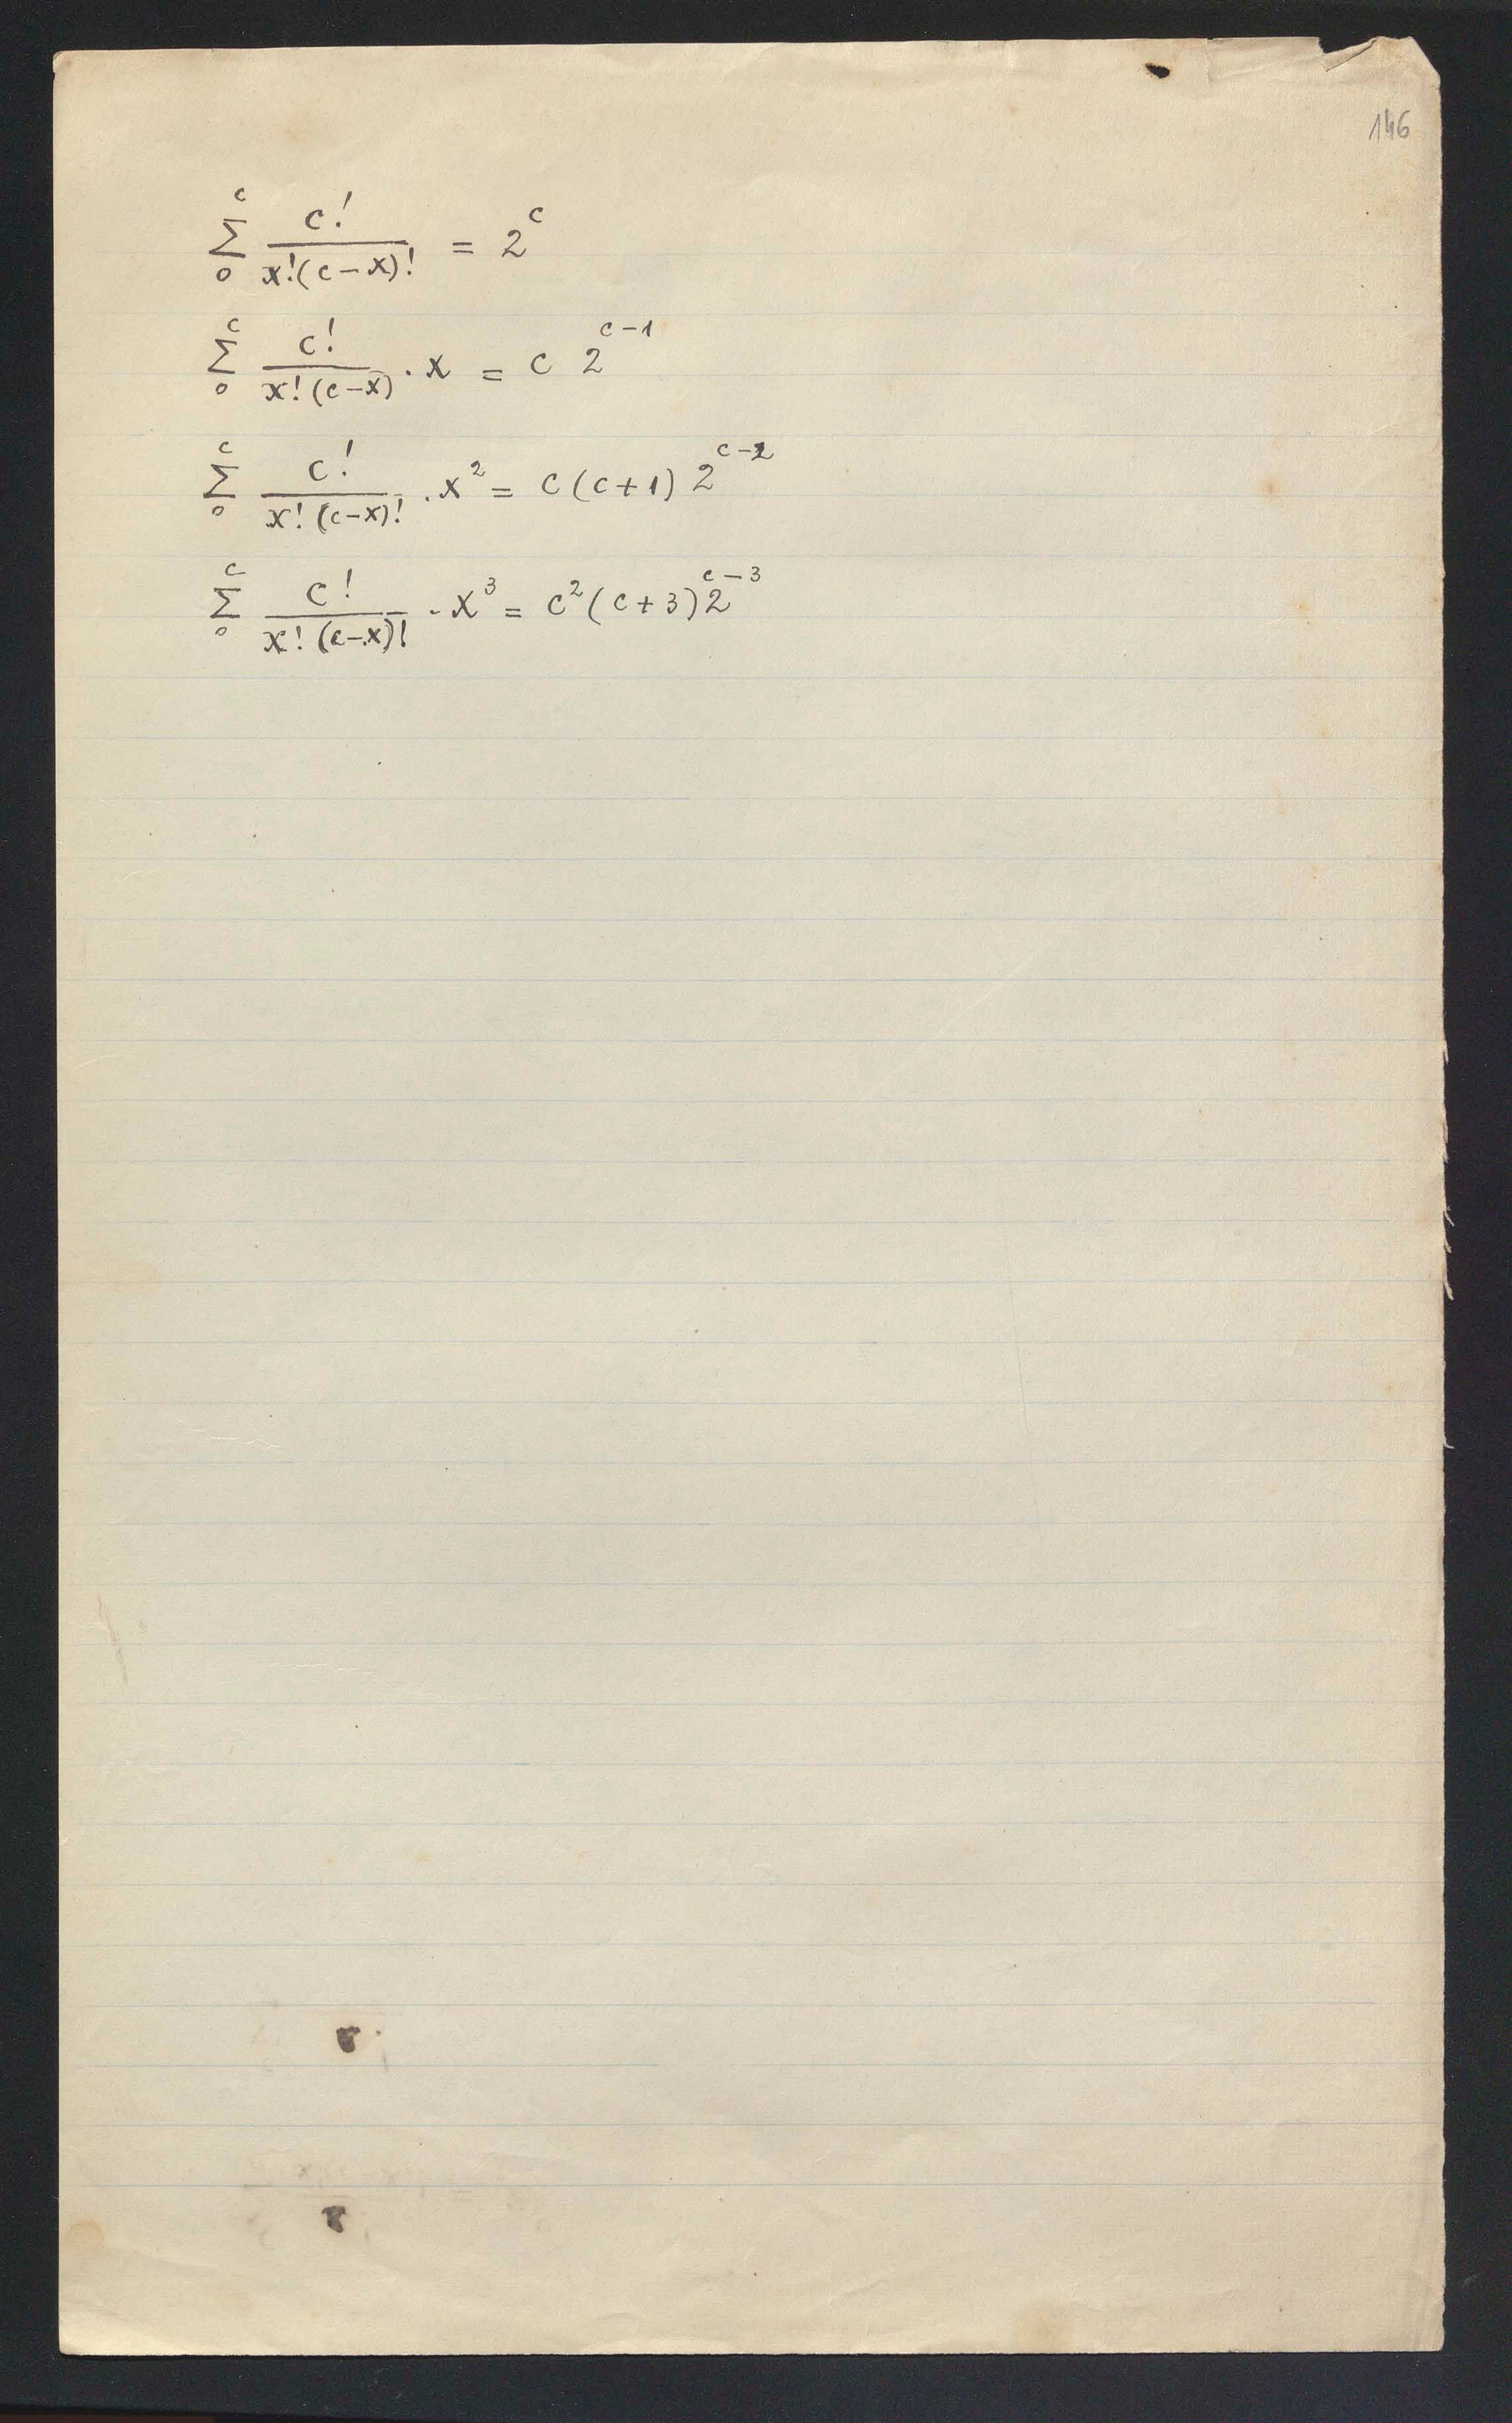 146
$\sum_{0}^{c} \frac{c!}{x!(c-x)!} = 2^{c}$
$\sum_{0}^{c} \frac{c!}{x!(c-x)} \cdot x = c \, 2^{c-1}$
$\sum_{0}^{c} \frac{c!}{x!(c-x)!} \cdot x^{2} = c(c+1) \, 2^{c-2}$
$\sum_{0}^{c} \frac{c!}{x!(c-x)!} \cdot x^{3} = c^{2}(c+3) \, 2^{c-3}$